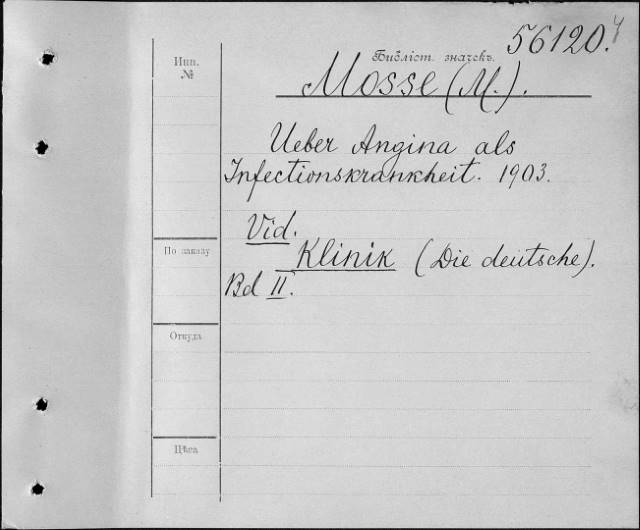 56120.4
Инв.
№
Библіот. значекъ.
Mosse (M.).
Ueber Angina als
Infectionskrankheit. 1903.
Vid.
Klinik (Die deutsche).
Bd II.
По заказу
Откуда
Цѣна